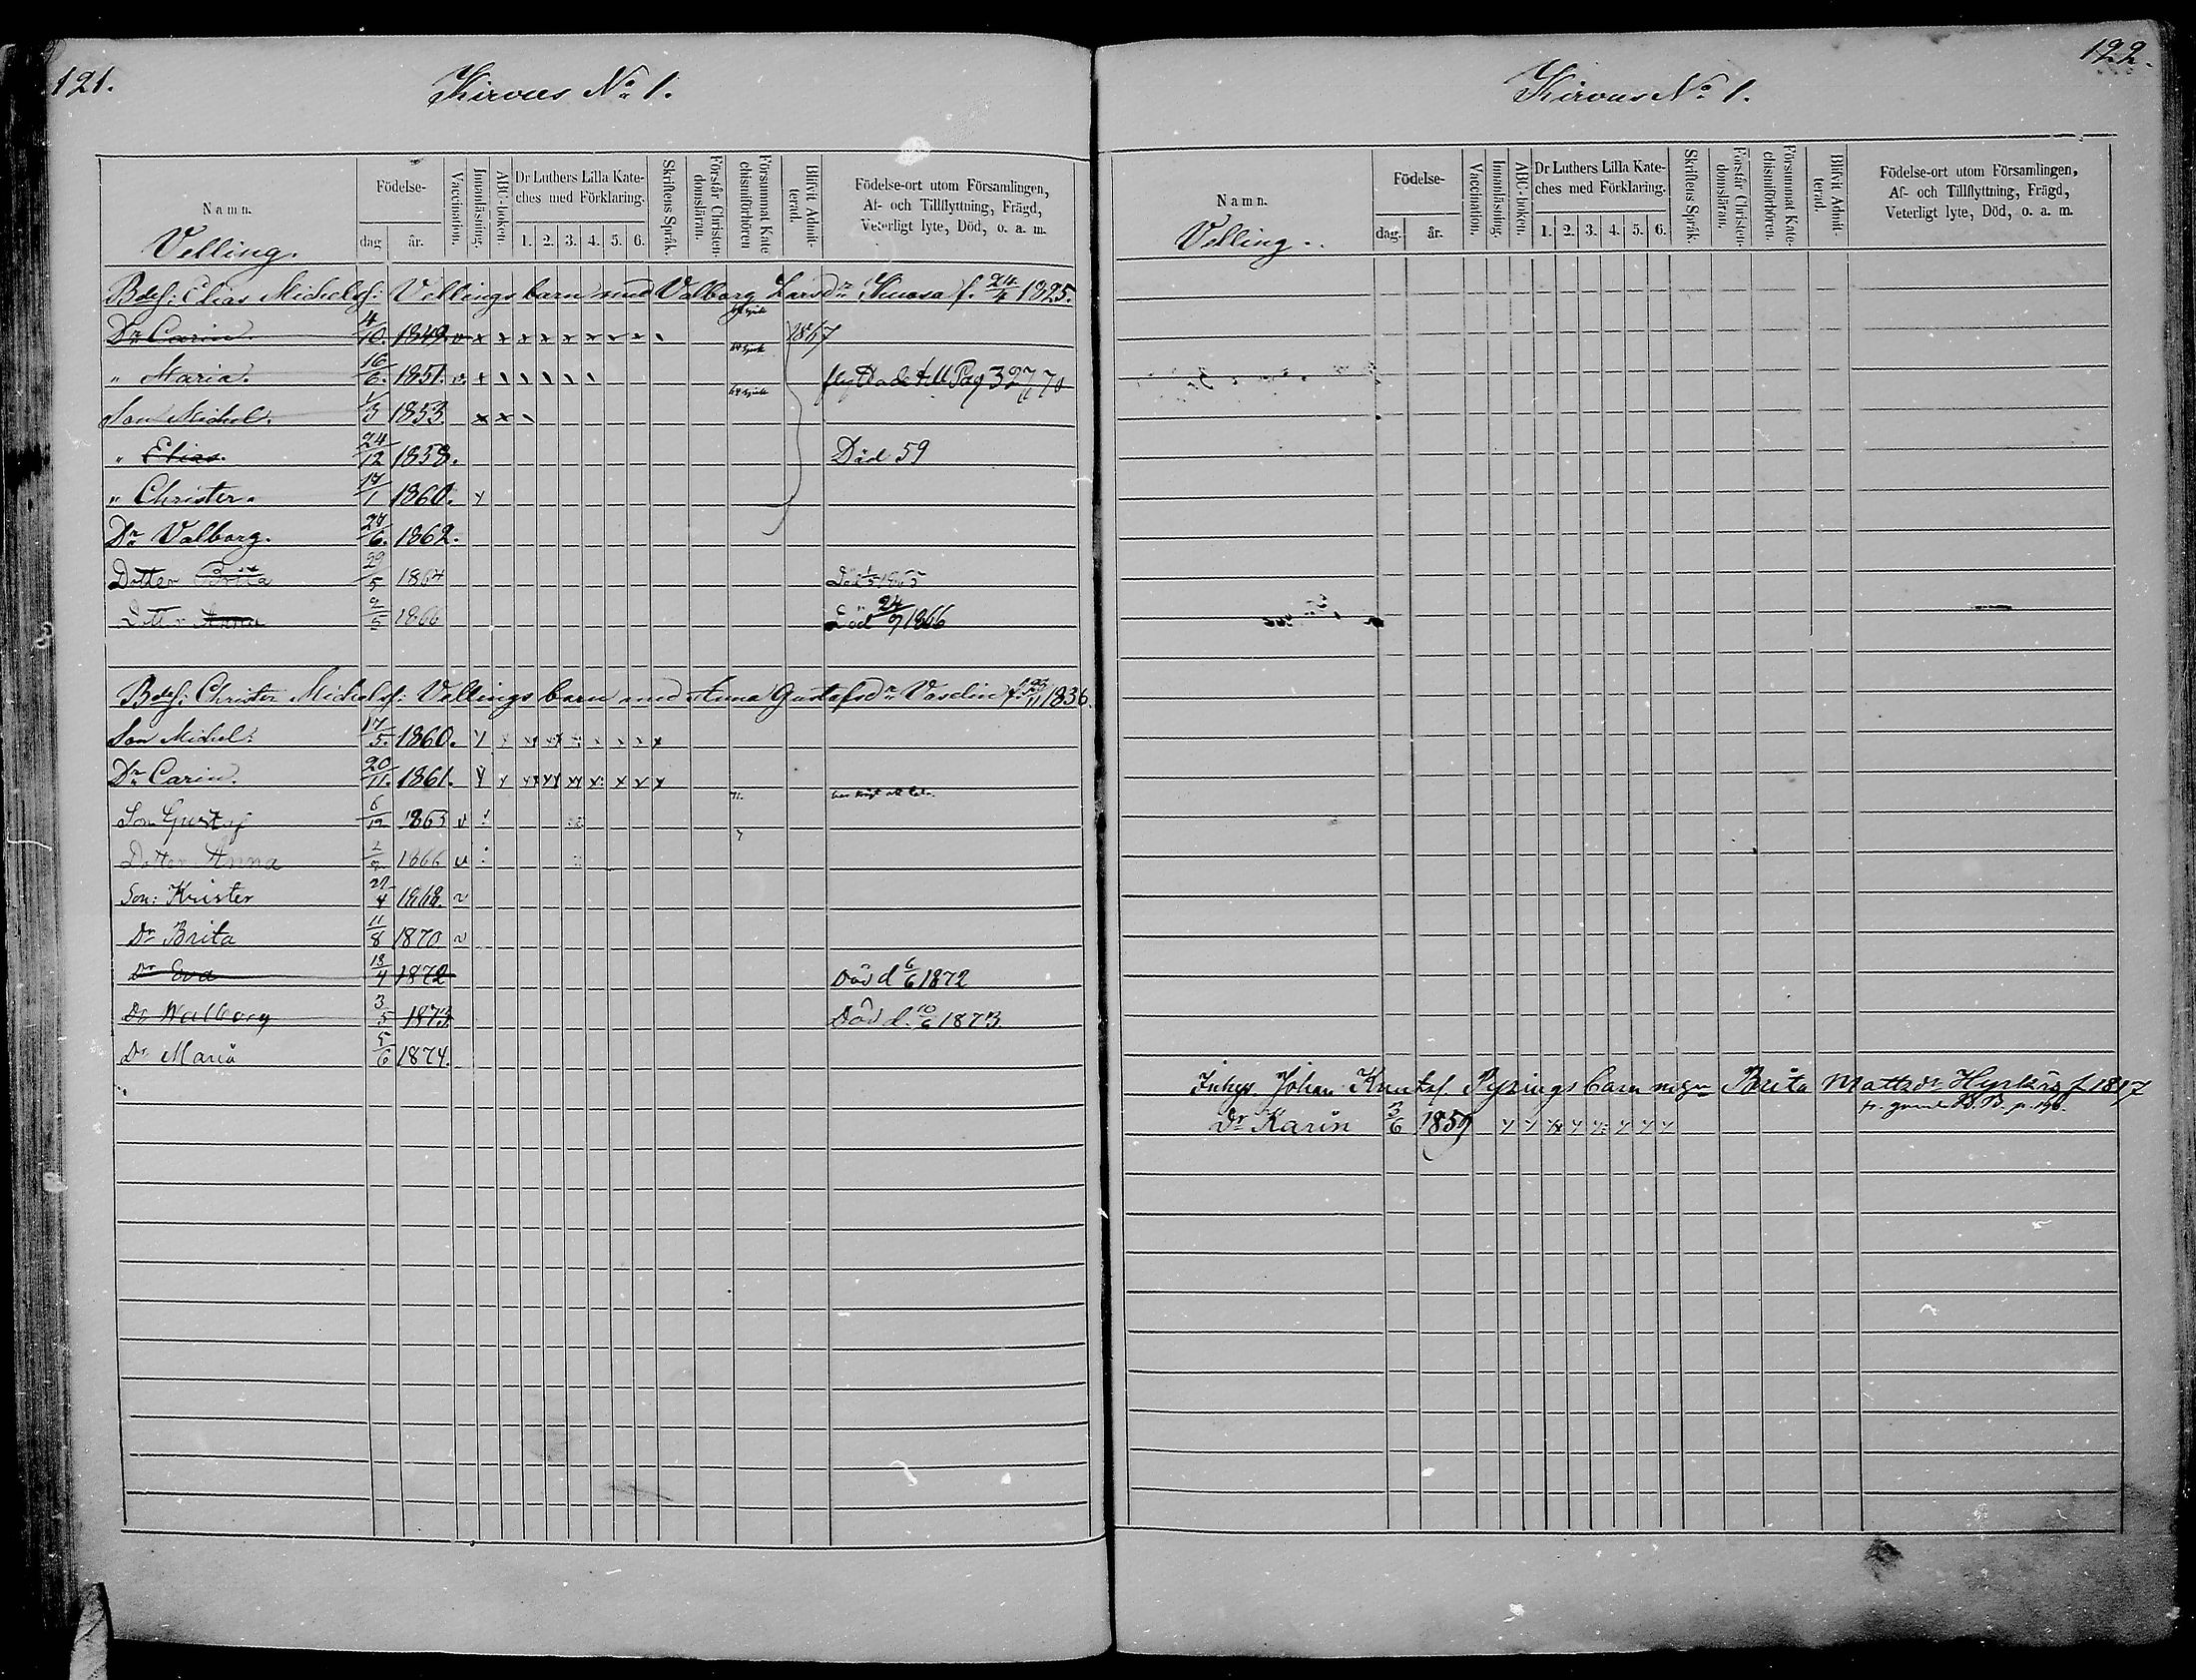 121.
Kirvus No 1.
Namn.
Födelse-
dag
år.
Vaccination.
Innanläsning.
ABC-boken.
Dr Luthers Lilla Kate-
ches med Förklaring.
1. 2. 3. 4. 5. 6.
Skriftens Språk.
Förstår Christen-
domsläran.
Försummat Kate
chismiförhören
Blifvit Admit-
terad.
Födelse-ort utom Församlingen,
Af- och Tillflyttning, Frägd,
Veterligt lyte, Död, o. a. m.
Velling.
Bdes: Elias Michelsf: Vellings barn med Valborg Larsdr f. 24/4 1825.
Dr Carin. 4/10. 1849 v x x x x x x x x 1867
" Maria. 16/6. 1851. v. x flyttade till Pag 327, 70
Son Michel. 1/3 1853. x x
" Elias. 24/12 1858. Död 59
" Christer. 17/1 1860. x
Dr Valborg. 27/6. 1862.
Dotter Brita 29/5 1864 Död 1865
Dotter Anna 2/5 1866 Död 24/9 1866
Bdes: Christer Michelsf: Vellings barn med Anna Gustafsdr Vaselin f. 1836.
Son Michel. 17/5. 1860.
Dr Carin. 20/11. 1861.
Son Gustaf 6/12 1863 v
Dotter Anna 1866 v
Son: Krister 27/4 1868. v
Dr Brita 11/8 1870 v
Dr Eva 13/4 1872 Död d 6/6 1872
Dr Walborg 3/5 1873 Död d. 10/6 1873
Dr Maria 5/6 1874.
122.
Kirvus No 1.
Namn.
Födelse-
dag.
år.
Vaccination.
Innanläsning.
ABC-boken.
Dr Luthers Lilla Kate-
ches med Förklaring.
1. 2. 3. 4. 5. 6.
Skriftens Språk.
Förstår Christen-
domsläran.
Försummat Kate-
chismiförhören.
Blifvit Admit-
terad.
Födelse-ort utom Församlingen,
Af- och Tillflyttning, Frägd,
Veterligt lyte, Död, o. a. m.
Velling.
Inhys. Johan Knutsf. Pyrings barn Brita Mattsdr f 1817
Dr Karin 3/6 1859